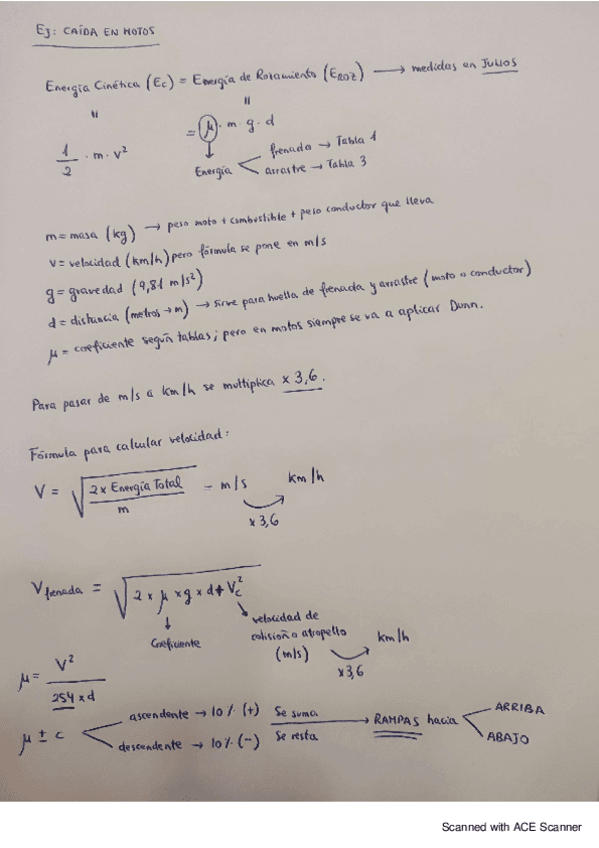 EJ: CAÍDA EN MOTOS
Energía Cinética (Ec) = Energía de Rozamiento (EROZ) → medidas en JULIOS
"
"
1/2 · m · v² = μ · m · g · d
Energía
frenada → Tabla 1
arrastre → Tabla 3
m = masa (kg) → peso moto + combustible + peso conductor que lleva
v = velocidad (km/h) pero fórmula se pone en m/s
g = gravedad (9,81 m/s²)
d = distancia (metros → m) → sirve para huella de frenada y arrastre (moto o conductor)
μ = coeficiente según tablas; pero en motos siempre se va a aplicar Dunn.
Para pasar de m/s a km/h se multiplica x 3,6.
Fórmula para calcular velocidad:
V = √(2 x Energía Total / m) = m/s km/h
x 3,6
Vfrenada = √(2 x μ x g x d + Vc²)
Coeficiente
velocidad de
colisión o atropello
(m/s)
km/h
x 3,6
μ = V² / 254 x d
μ ± c
ascendente → 10% (+) Se suma
descendente → 10% (-) Se resta
RAMPAS hacia
ARRIBA
ABAJO
Scanned with ACE Scanner